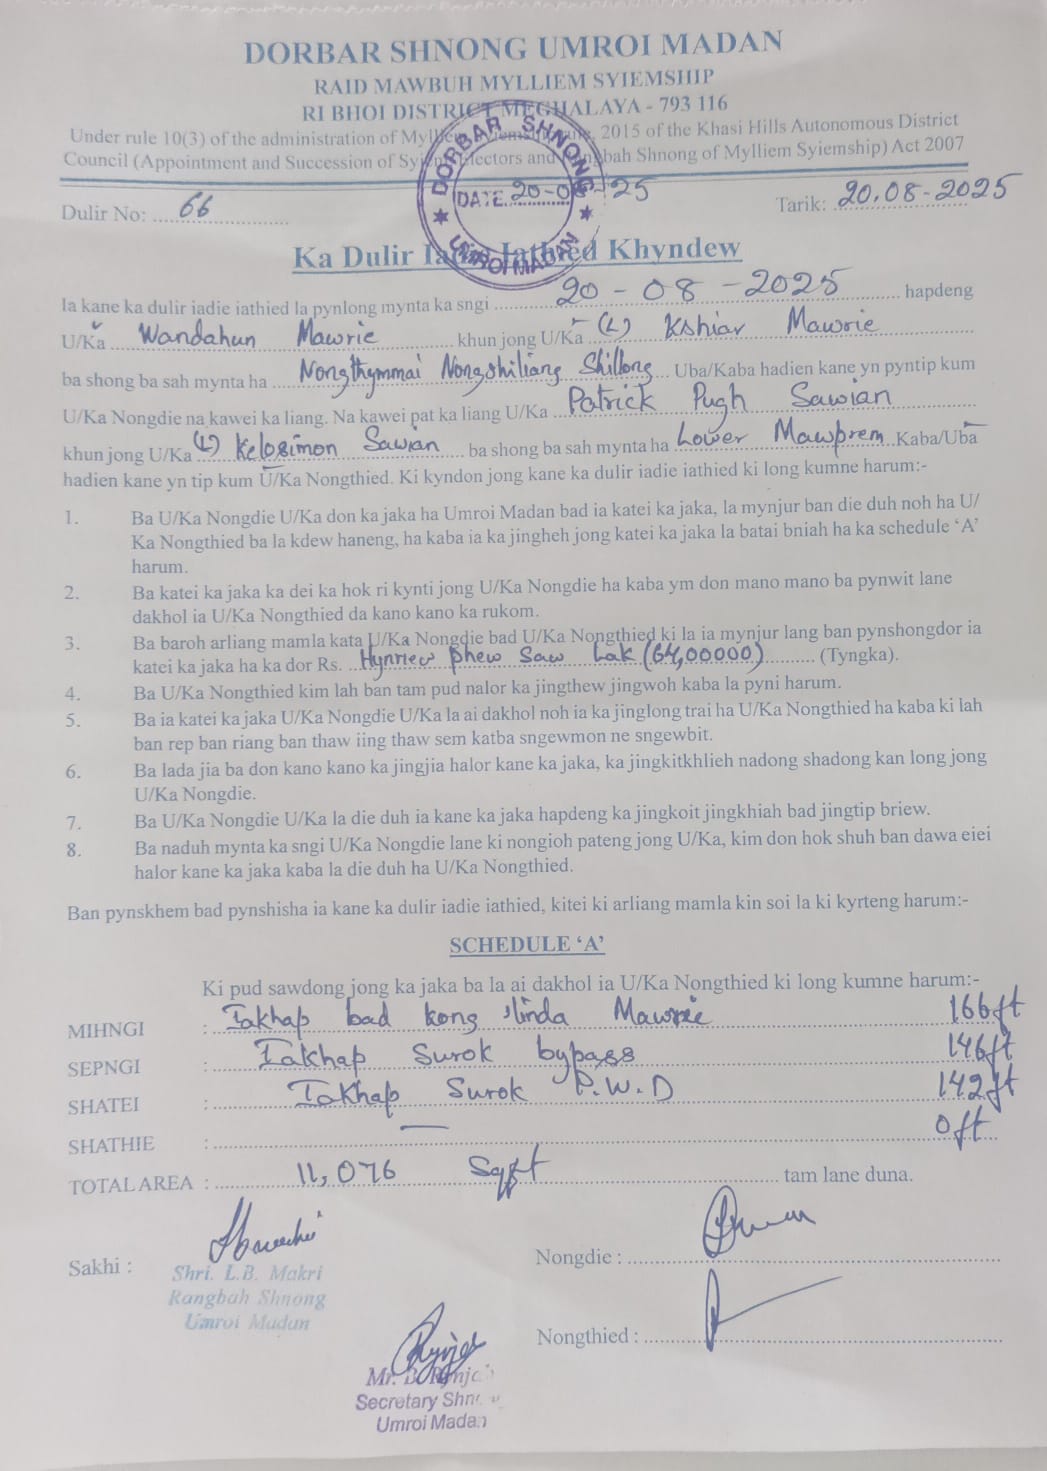 DORBAR SHNONG UMROI MADAN
RAID MAWBUH MYLLIEM SYIEMSHIP
RI BHOI DISTRICT MEGHALAYA - 793 116
Under rule 10(3) of the administration of Mylliem Syiemship 2015 of the Khasi Hills Autonomous District
Council (Appointment and Succession of Syiem Electors and Rangbah Shnong of Mylliem Syiemship) Act 2007
DORBAR SHNONG
DATE 20-08-25
UMROI MADAN
Dulir No: 66
Tarik: 20.08-2025
Ka Dulir Iadie Iathied Khyndew
Ia kane ka dulir iadie iathied la pynlong mynta ka sngi 20-08-2025 hapdeng
U/Ka Wandahun Mawrie khun jong U/Ka (L) Kshiar Mawrie
ba shong ba sah mynta ha Nongthymmai Nongshiliang Shillong Uba/Kaba hadien kane yn pyntip kum
U/Ka Nongdie na kawei ka liang. Na kawei pat ka liang U/Ka Patrick Pugh Sawian
khun jong U/Ka (L) Kelosimon Sawian ba shong ba sah mynta ha Lower Mawprem Kaba/Uba
hadien kane yn tip kum U/Ka Nongthied. Ki kyndon jong kane ka dulir iadie iathied ki long kumne harum:-
1. Ba U/Ka Nongdie U/Ka don ka jaka ha Umroi Madan bad ia katei ka jaka, la mynjur ban die duh noh ha U/
Ka Nongthied ba la kdew haneng, ha kaba ia ka jingheh jong katei ka jaka la batai bniah ha ka schedule ‘A’
harum.
2. Ba katei ka jaka ka dei ka hok ri kynti jong U/Ka Nongdie ha kaba ym don mano mano ba pynwit lane
dakhol ia U/Ka Nongthied da kano kano ka rukom.
3. Ba baroh arliang mamla kata U/Ka Nongdie bad U/Ka Nongthied ki la ia mynjur lang ban pynshongdor ia
katei ka jaka ha ka dor Rs. Hynriew phew saw Lak (64,00000) (Tyngka).
4. Ba U/Ka Nongthied kim lah ban tam pud nalor ka jingthew jingwoh kaba la pyni harum.
5. Ba ia katei ka jaka U/Ka Nongdie U/Ka la ai dakhol noh ia ka jinglong trai ha U/Ka Nongthied ha kaba ki lah
ban rep ban riang ban thaw iing thaw sem katba sngewmon ne sngewbit.
6. Ba lada jia ba don kano kano ka jingjia halor kane ka jaka, ka jingkitkhlieh nadong shadong kan long jong
U/Ka Nongdie.
7. Ba U/Ka Nongdie U/Ka la die duh ia kane ka jaka hapdeng ka jingkoit jingkhiah bad jingtip briew.
8. Ba naduh mynta ka sngi U/Ka Nongdie lane ki nongioh pateng jong U/Ka, kim don hok shuh ban dawa eiei
halor kane ka jaka kaba la die duh ha U/Ka Nongthied.
Ban pynskhem bad pynshisha ia kane ka dulir iadie iathied, kitei ki arliang mamla kin soi la ki kyrteng harum:-
SCHEDULE ‘A’
Ki pud sawdong jong ka jaka ba la ai dakhol ia U/Ka Nongthied ki long kumne harum:-
MIHNGI : Iakhap bad kong linda Mawrie 166ft
SEPNGI : Iakhap Surok bypass 146ft
SHATEI : Iakhap Surok P.W.D 142ft
SHATHIE : — 0ft
TOTAL AREA : 11,076 Sqft tam lane duna.
Sakhi :
Shri. L.B. Makri
Rangbah Shnong
Umroi Madan
Nongdie :
Nongthied :
Mr. B.
Secretary
Umroi Madan